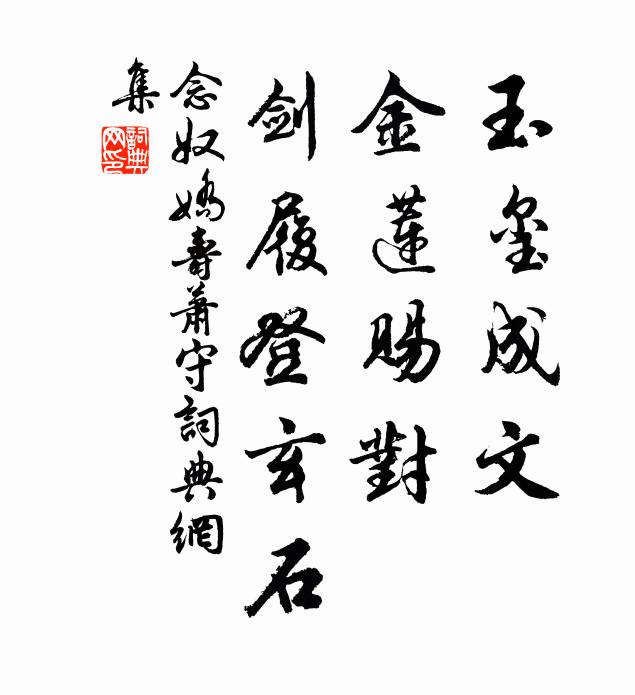 玉璽成文
金蓮賜對
劍履登玄石
念奴嬌壽蕭守詞典網
集
詞典網印